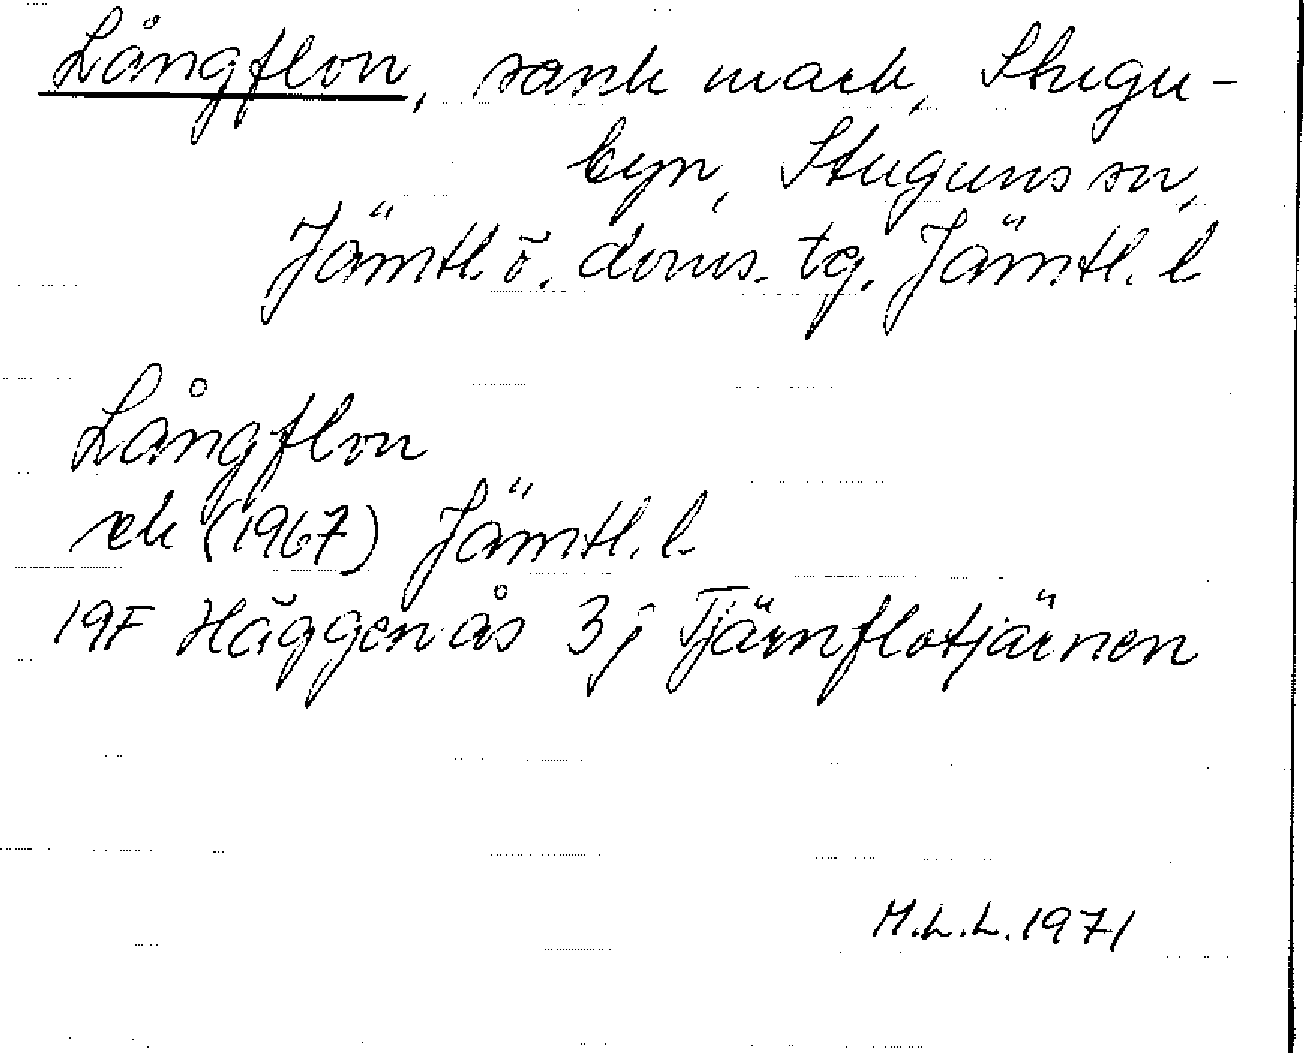 Långflon, sank mark, Stugu-
byn, Stuguns sn,
Jämtl. ö. doms. tg. Jämtl. l
Långflon
ek (1967) Jämtl. l.
19F Häggenås 3j Tjärnflotjärnen
M.L.L. 1971